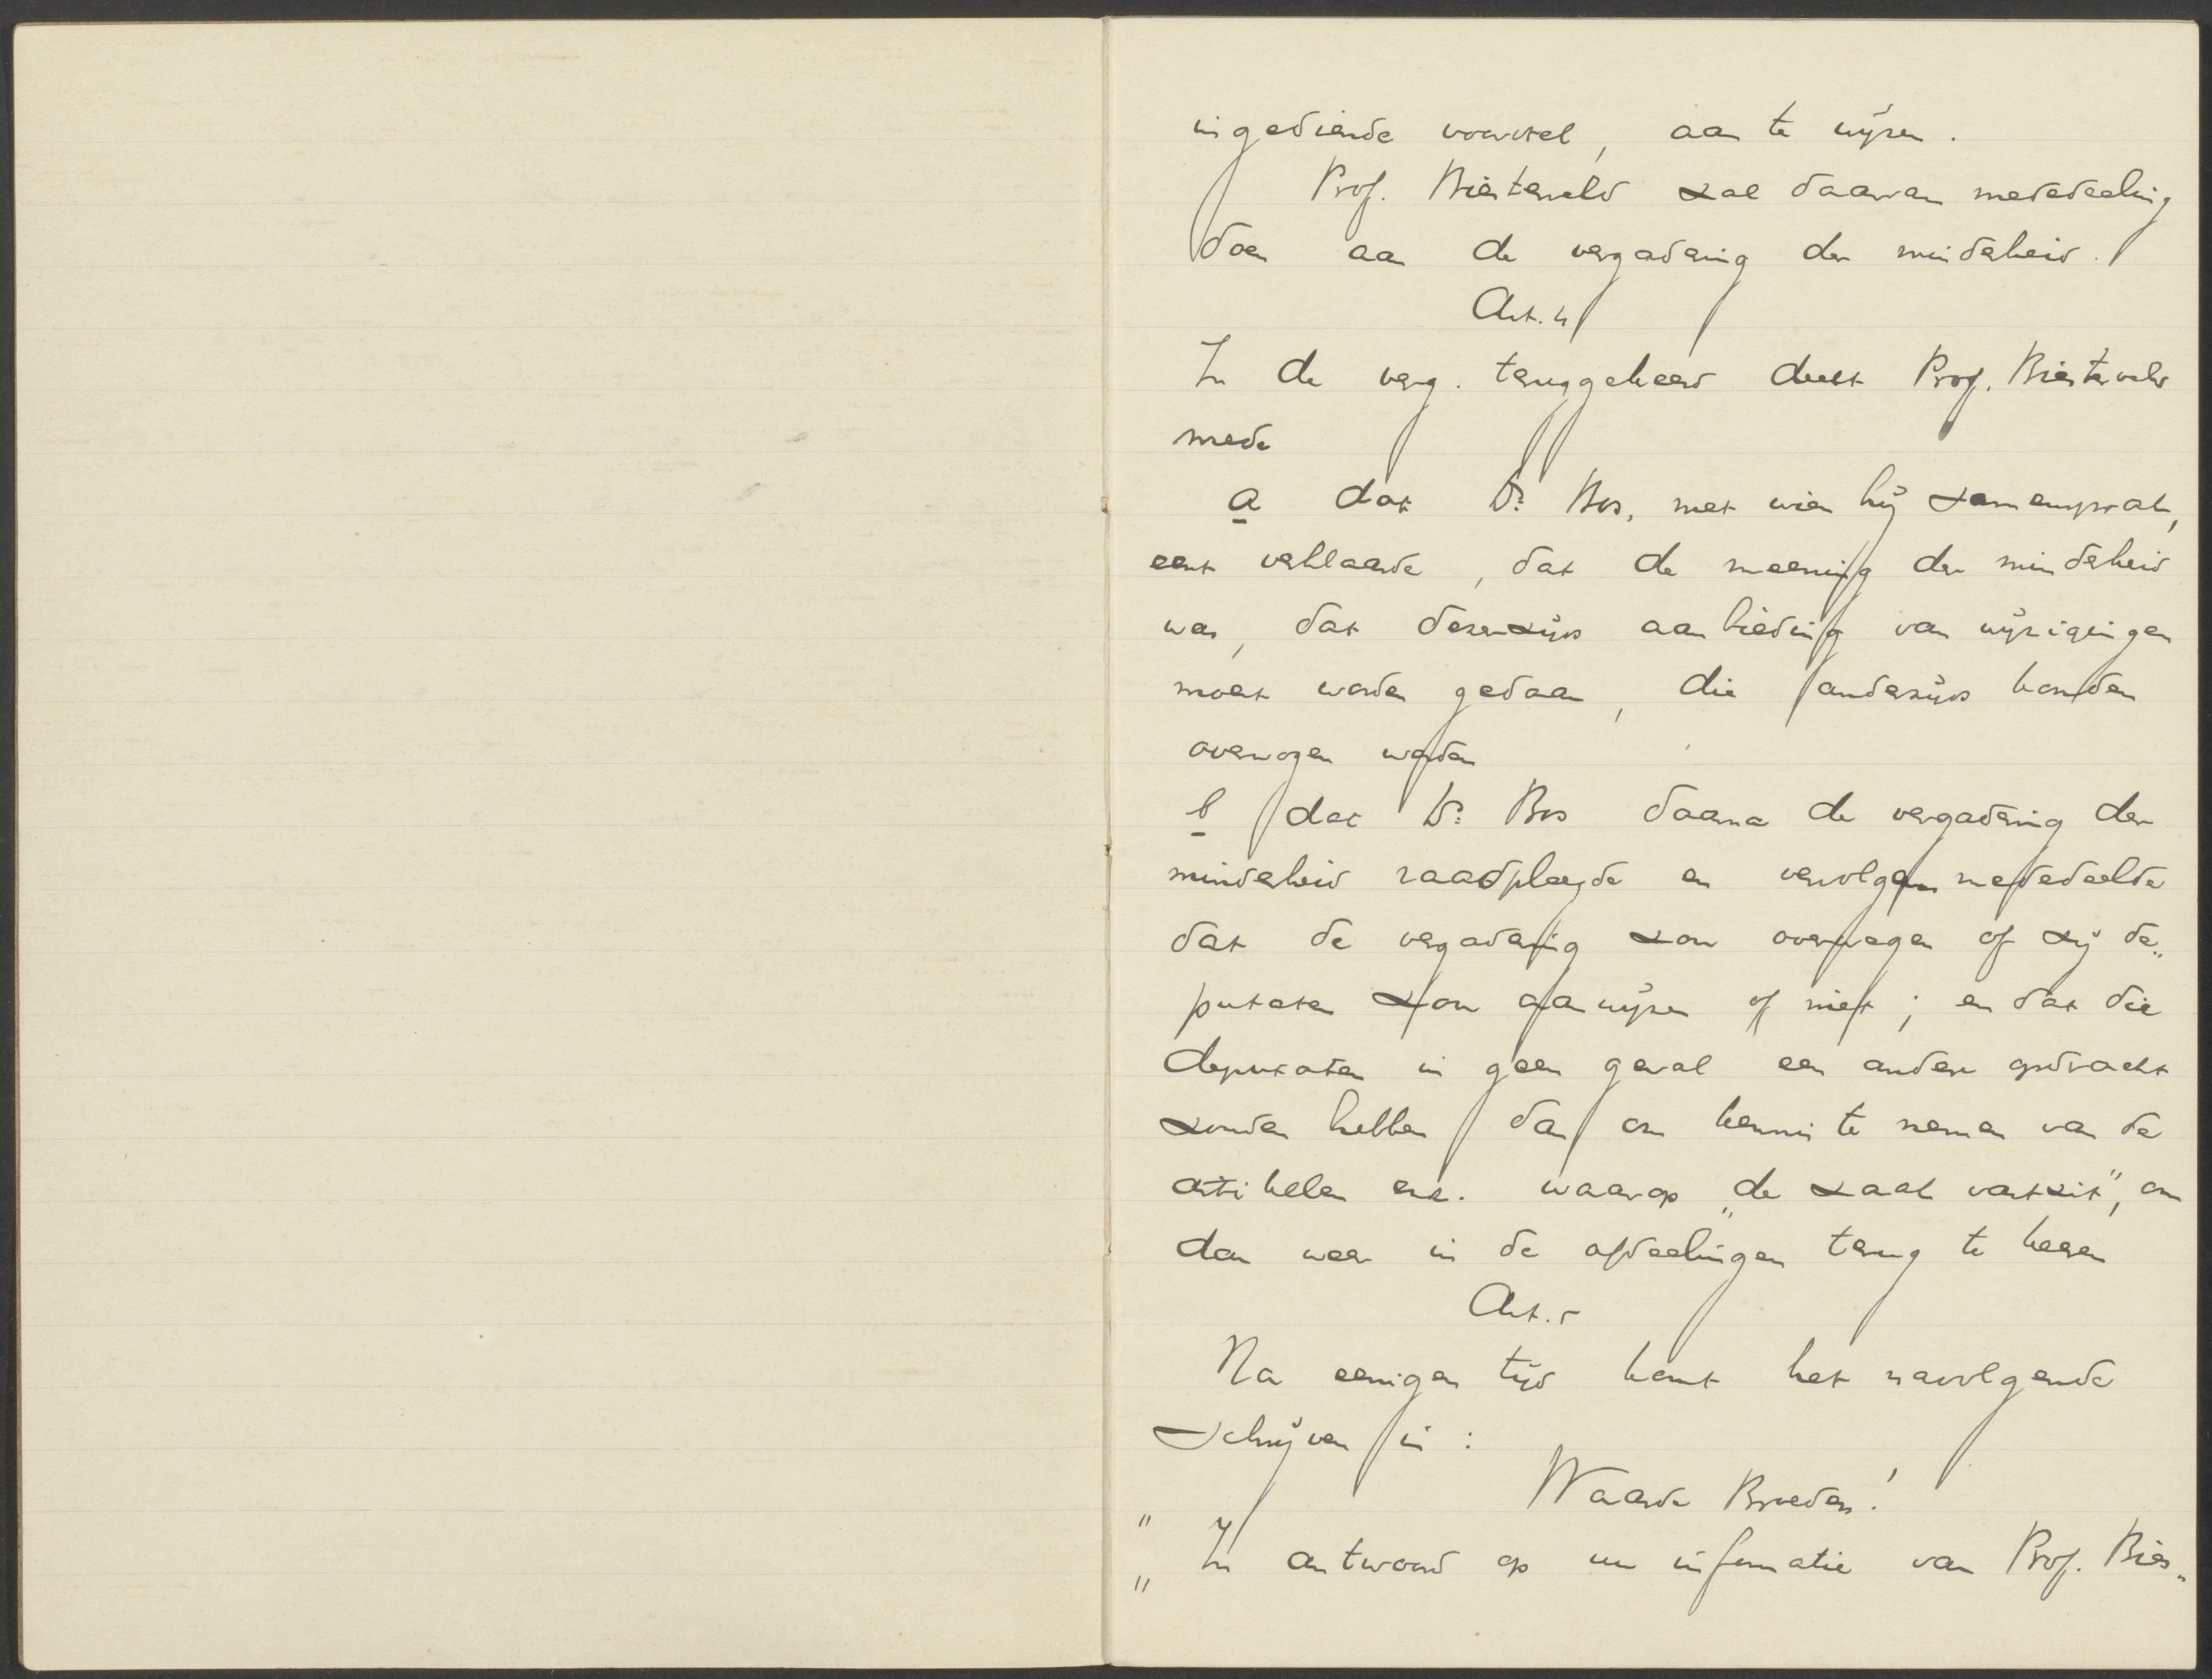 ingediende voorstel, aan te wijzen.
Prof. Biesterveld zal daarvan mededeeling
doen aan de vergadering der minderheid.
Art. 4
In de verg. teruggekeerd deelt Prof. Biesterveld
mede
a dat Dr. Bos, met wien hij samensprak,
eerst verklaarde, dat de meening der minderheid
was, dat dezerzijds aanbieding van wijzigingen
moest worden gedaan, die anderzijds konden
overwogen worden
b dat Dr. Bos daarna de vergadering der
minderheid raadpleegde en vervolgens mededeelde
dat de vergadering zou overwegen of zij de„
putaten zou aanwijzen of niet; en dat die
deputaten in geen geval een andere opdracht
zouden hebben dan om kennis te nemen van de
artikelen enz. waarop „de zaak vastzit”, om
dan weer in de afdeelingen terug te keeren
Art. 5
Na eenigen tijd komt het navolgende
schrijven in:
" Waarde Broeders!
„ In antwoord op uw informatie van Prof. Bies„